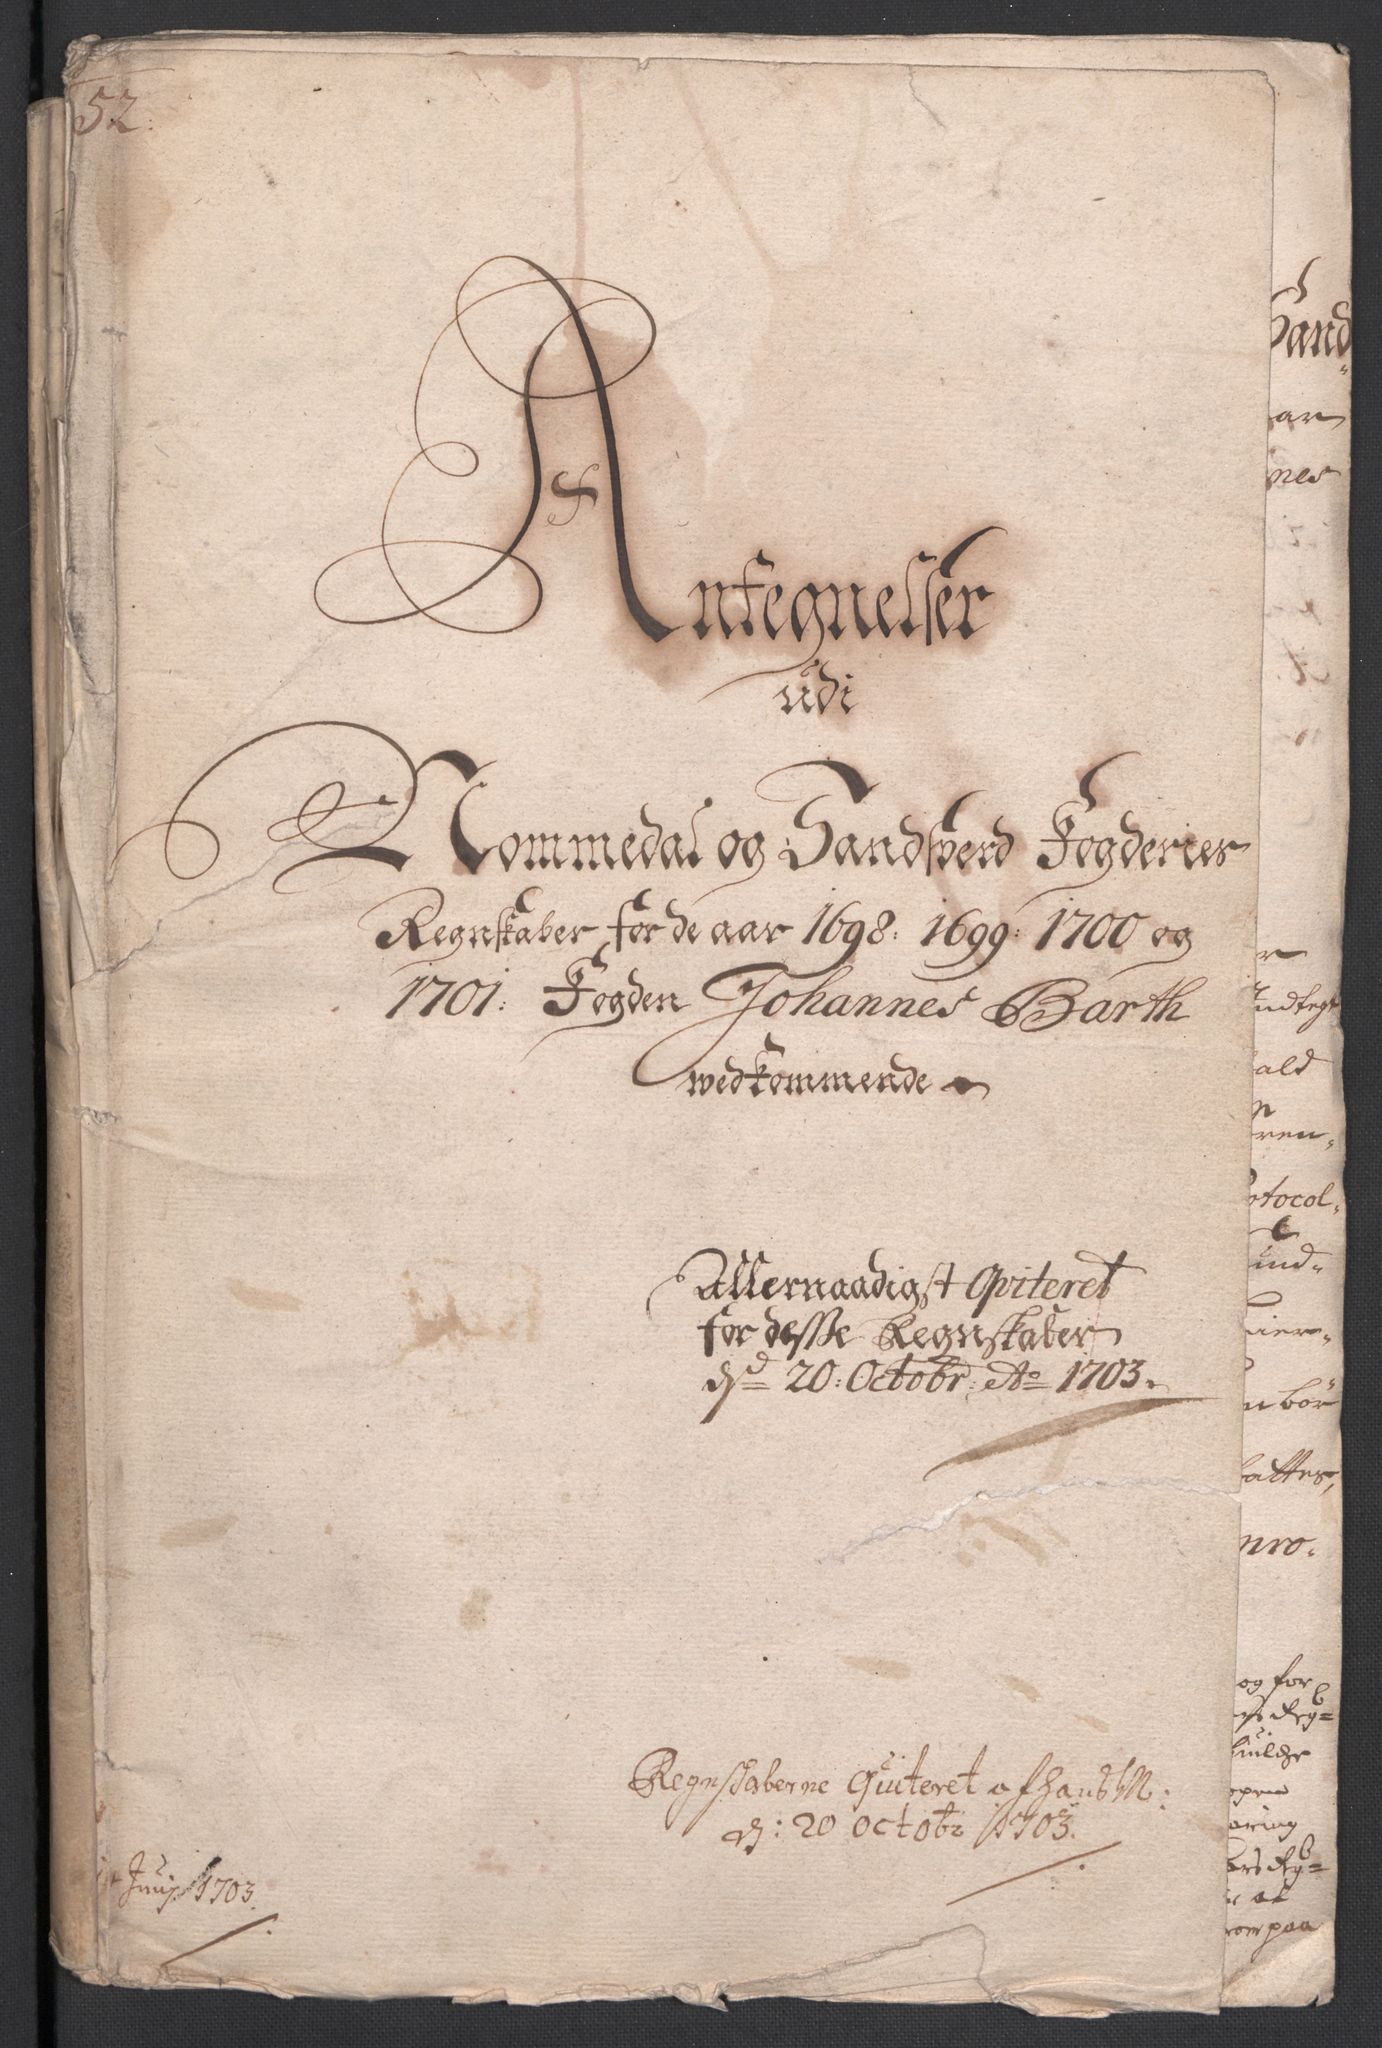 52.
Antegnelser
udi
Nommedal og Sandsverd Fogderies
Regnskaber for de aar 1698. 1699. 1700 og
1701. Fogden Johannes Barth
wedkommende
Allernaadigst Qviteret
for desse Regnskaber
dd 20. Octobr. Ao 1703.
Regnskaberne Quiteret af hans M:
d: 20 Octobr 1703.
Junij 1703.
Sand-
ar
nes
r
ald
ren-
otocol-
und-
n bör
attes,
nro.
og for
Reg=
aring
Reg=
at
som paa